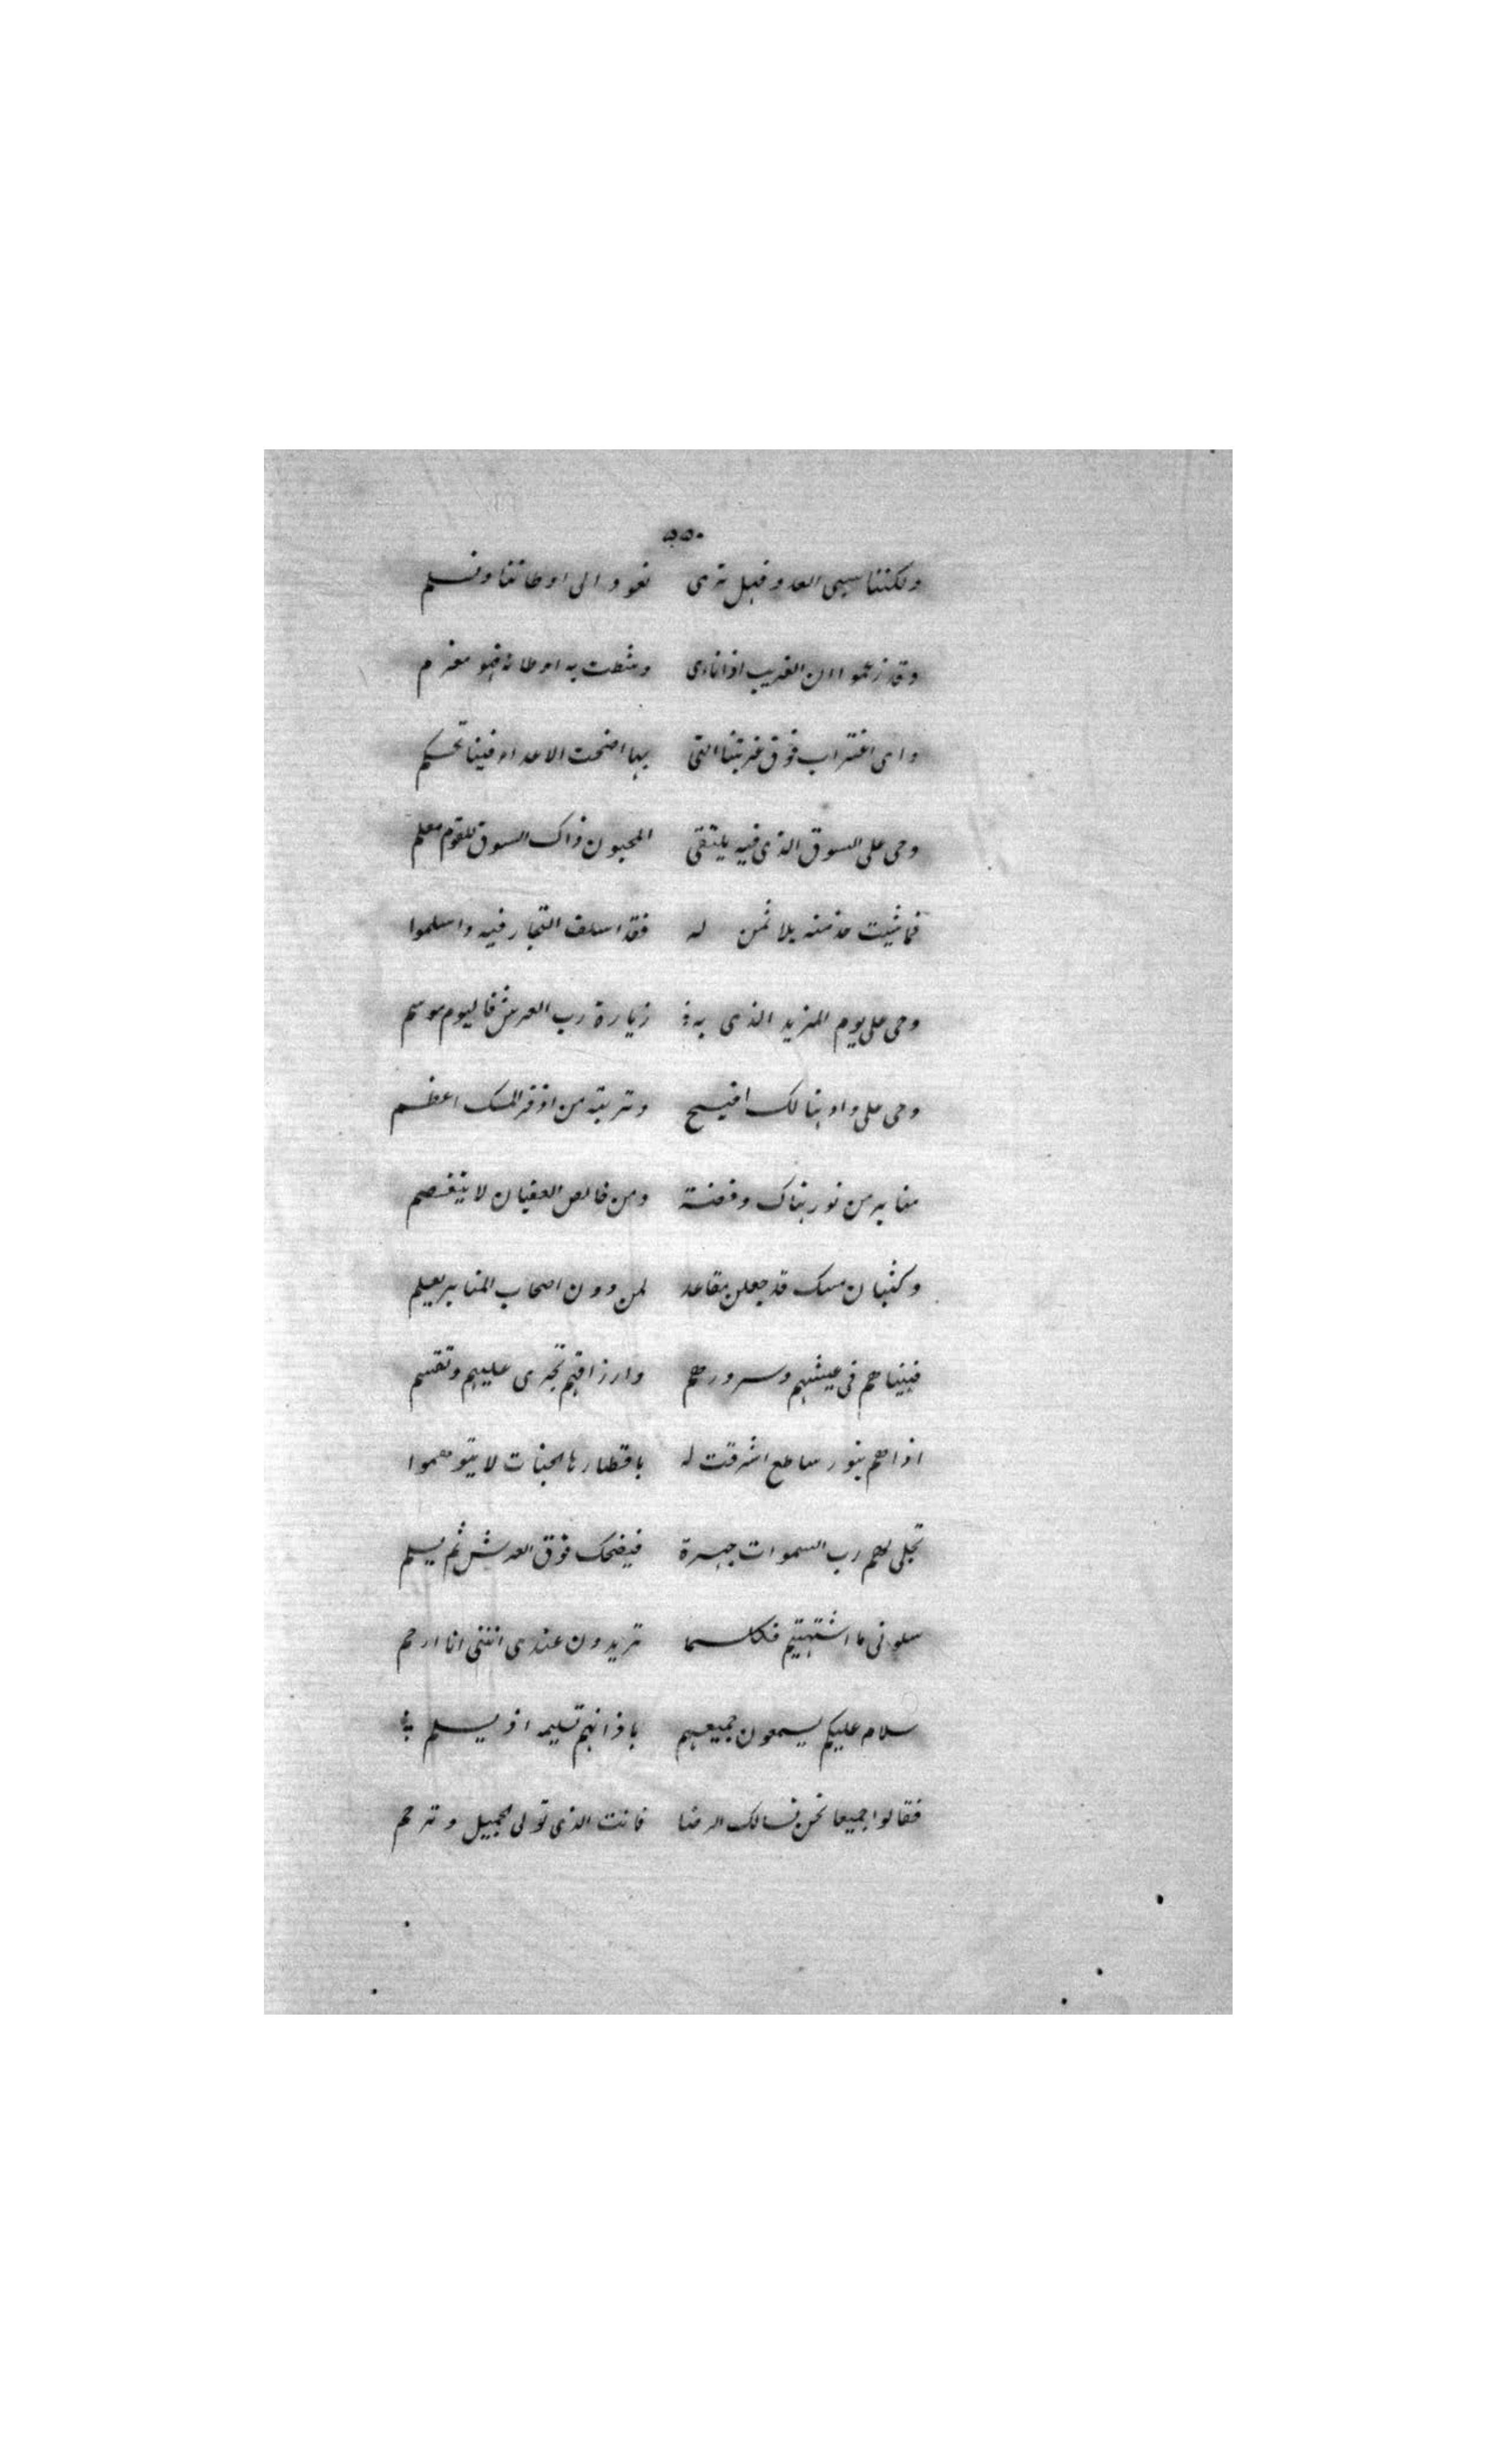 ٥٥٠
ولكننا سبى العدو فهل ترى نعود الى اوطاننا ونسلم
وقد زعموا ان الغريب اذا ناى وشطت به اوطانه فهو مغرم
واى اغتراب فوق غربتنا التى بها اضحت الاعداء فينا تحكم
وحى على السوق الذى فيه يلتقى المحبون ذاك السوق للقوم معلم
فما شيت خذ منه بلا ثمن له فقد اسلف التجار فيه واسلموا
وحى على يوم المزيد الذى به زيارة رب العرش فاليوم موسم
وحى على واد هنالك افيح وتربته من اذفر المسك اعظم
منابر من نور هناك وفضة ومن خالص العقيان لا يتفصم
وكثبان مسك قد جعلن مقاعد لمن دون اصحاب المنابر يعلم
فبينا هم فى عيشهم وسرورهم وارزاقهم تجرى عليهم وتقسم
اذا هم بنور ساطع اشرقت له باقطارها الجنات لا يتوهموا
تجلى لهم رب السموات جهرة فيضحك فوق العرش ثم يسلم
سلام عليكم يسمعون جميعهم باذانهم تسليمه اذ يسلم
سلونى ما اشتهيتم فكلما تريدون عندى اننى انا ارحم
فقالوا جميعا نحن نسالك الرضا فانت الذى تولى الجميل وترحم